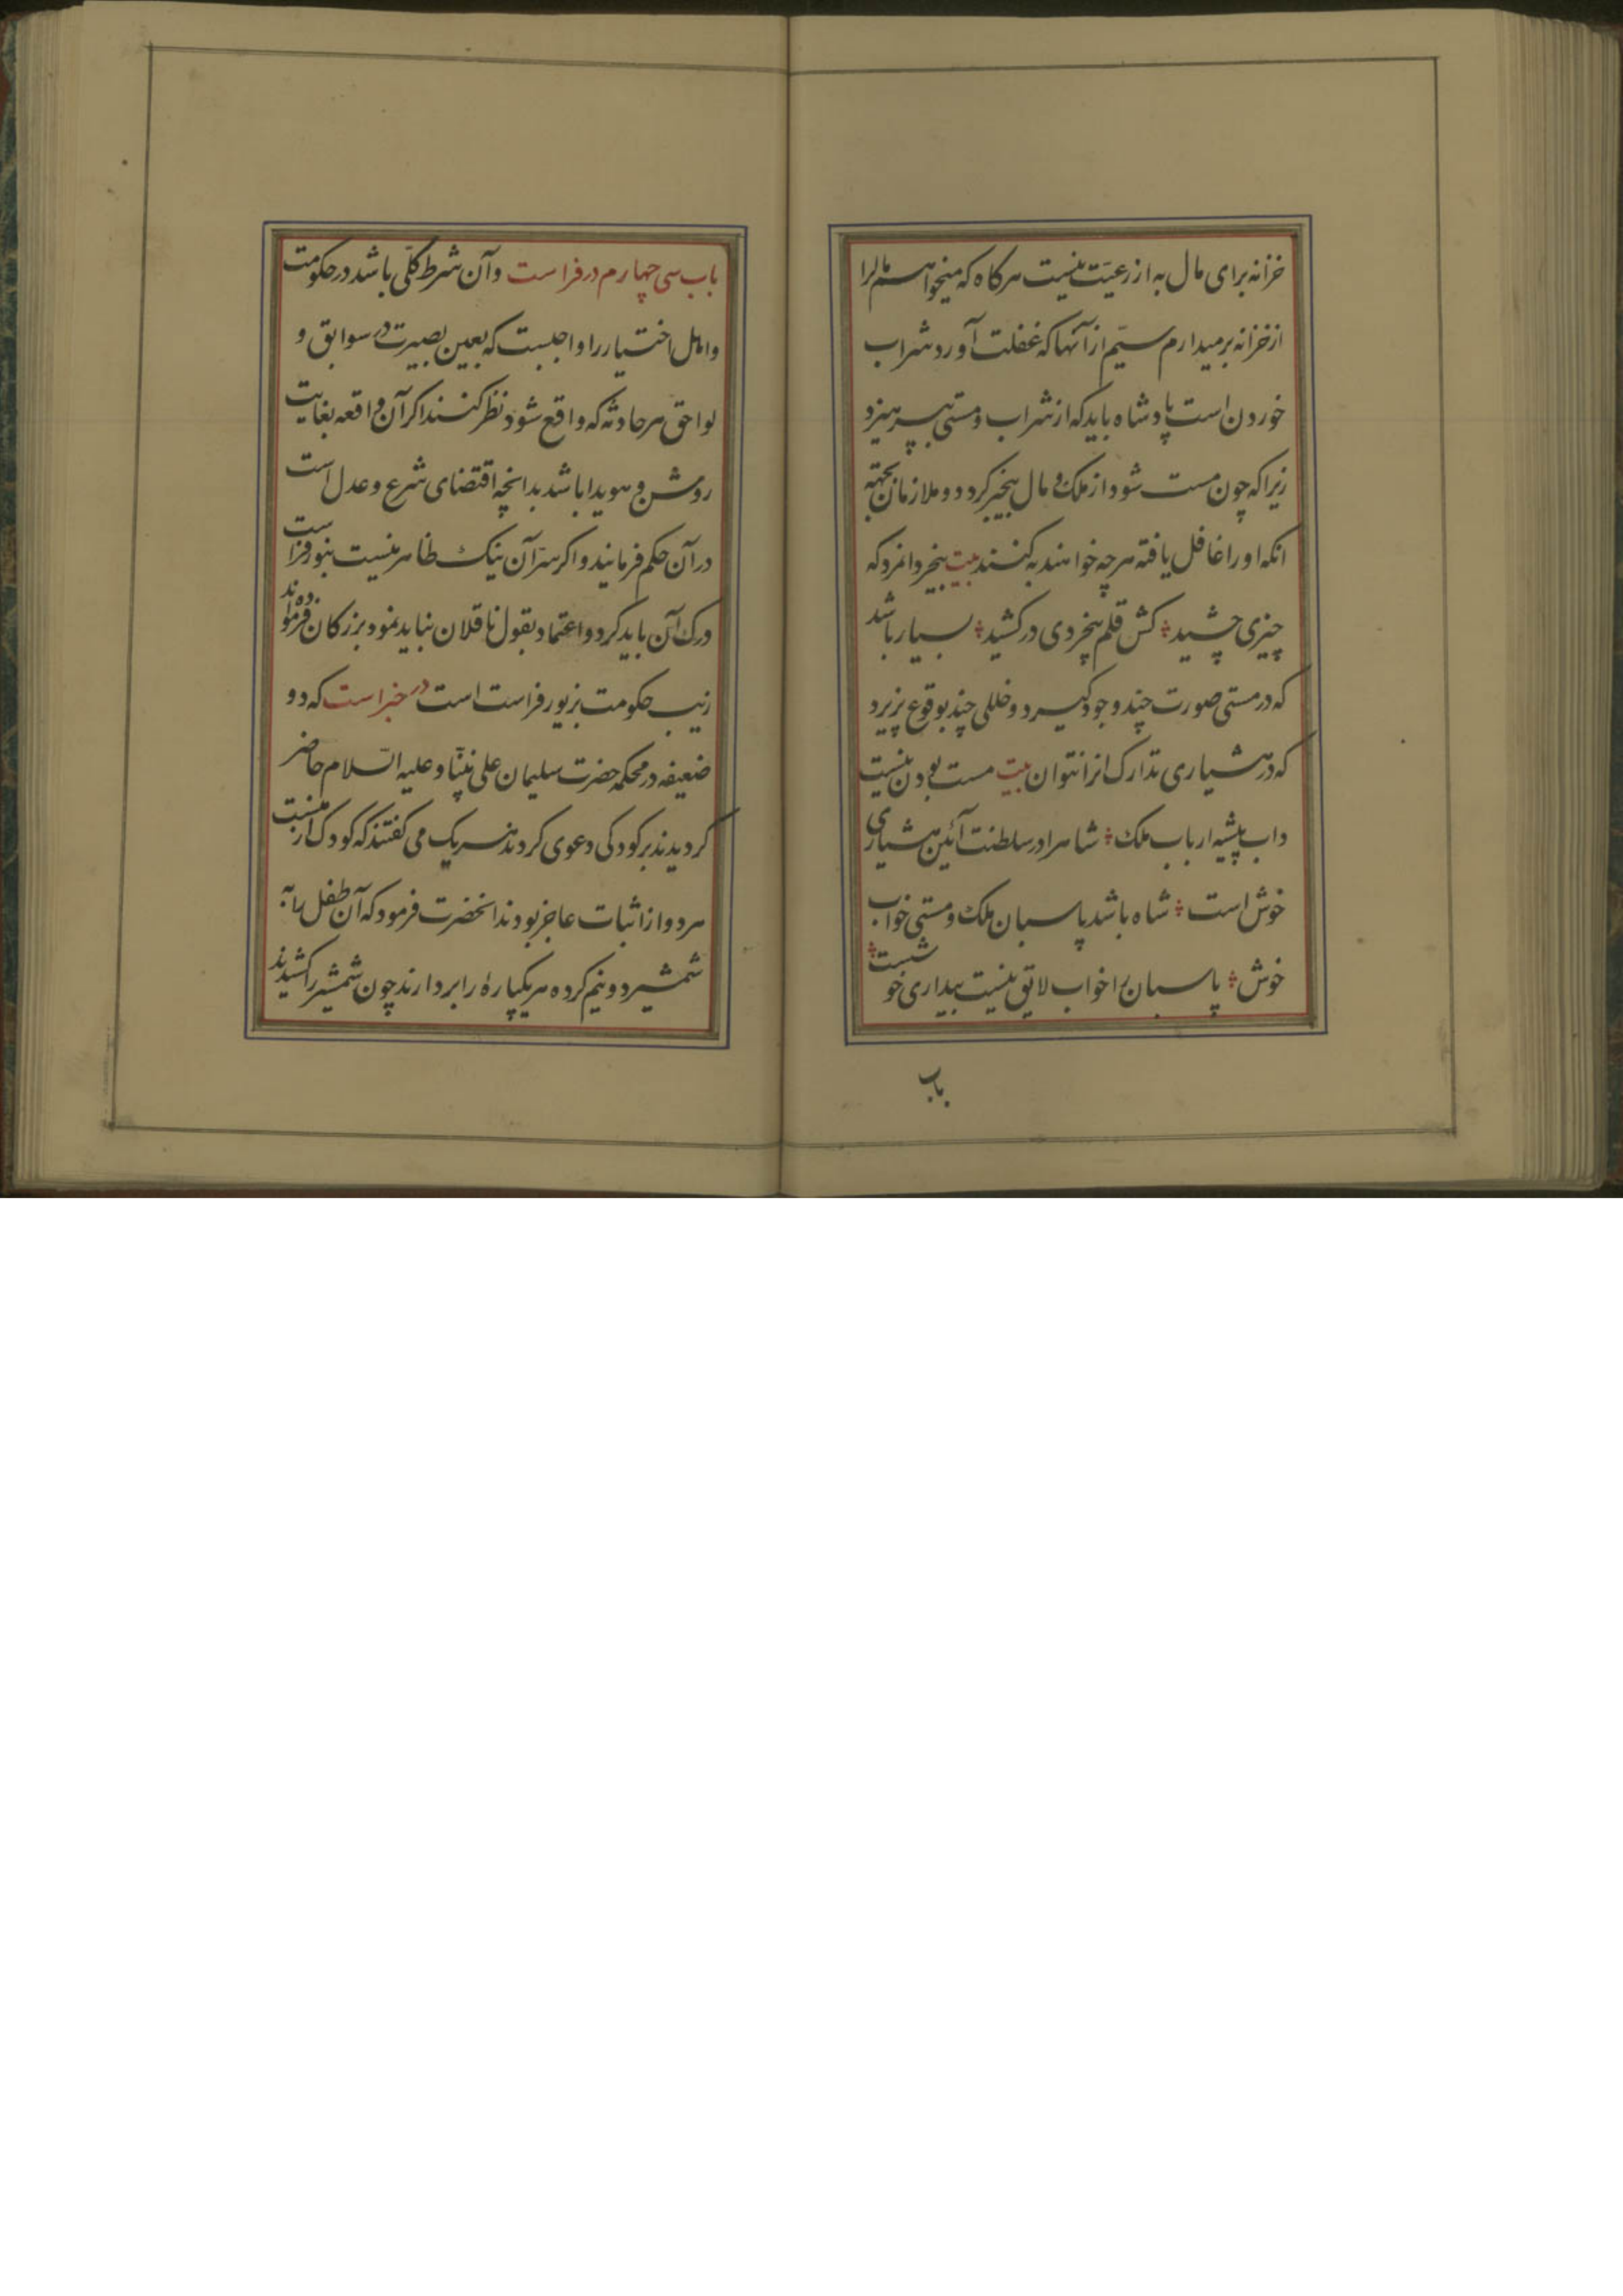 خزانه برای مال به از رعیّت نیست هرکاه که میخواهم مالرا
از خزانه برمیدارم سیّم از آنها که غفلت آورد شراب
خوردن است پادشاه باید که از شراب و مستی بپرهیزد
زیرا که چون مست شود از ملک و مال بیخبر کردد و ملازمان بجهته
انکه او را غافل یافته هرچه خواهند به کنند بیت بیخرد انمرد که
چیزی چشید ؞ کش قلم بیخردی در کشید ؞ بسیار باشد
که در مستی صورت چند وجود کیرد و خللی چند بوقوع پزیرد
که در هشیاری تدارک انرا نتوان بیت مست بودن نیست
داب پیشه ارباب ملک ؞ شاهرا در سلطنت آئین هشیاری
خوش است ؞ شاه باشد پاسبان ملک و مستی خواب
خوش ؞ پاسبان را خواب لایق نیست بیداری خوشست ؞
باب
باب سی چهارم در فراست و آن شرط کلّی باشد در حکومت
و اهل اختیار را واجبست که بعین بصیرت در سوابق و
لواحق هر حادثه که واقع شود نظر کنند اکر آن واقعه بغایت
روشن و هویدا باشد بدانچه اقتضای شرع و عدل است
در آن حکم فرمایند و اکر سرّ آن نیک ظاهر نیست بنور فراست
درک آن باید کرد و اعتماد بقول ناقلان نباید نمود بزرکان فرموده‌اند
زیب حکومت بزیور فراست است در خبر است که دو
ضعیفه در محکمه حضرت سلیمان علی نبیّنا و علیه السّلام حاضر
کردیدند بر کودکی دعوی کردند هر یک می کفتند که کودک از منست
هر دو از اثبات عاجز بودند انحضرت فرمود که آن طفل را به
شمشیر دو نیم کرده هر یکپارهٔ را بردارند چون شمشیر را کشیدند